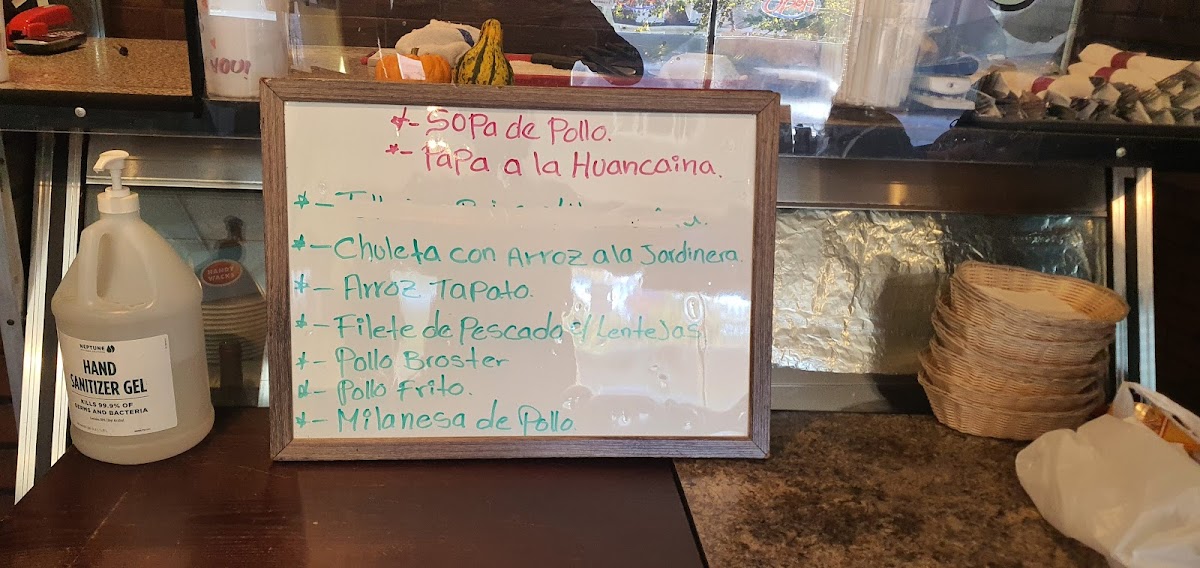 YOU!
*- Sopa de Pollo.
*- Papa a la Huancaina.
*- Chuleta con Arroz a la Jardinera.
*- Arroz Tapato.
*- Filete de Pescado c/ Lentejas
*- Pollo Broster
*- Pollo Frito.
*- Milanesa de Pollo.
HANDY
WACKS
NEPTUNE
HAND
SANITIZER GEL
KILLS 99.9% OF
GERMS AND BACTERIA